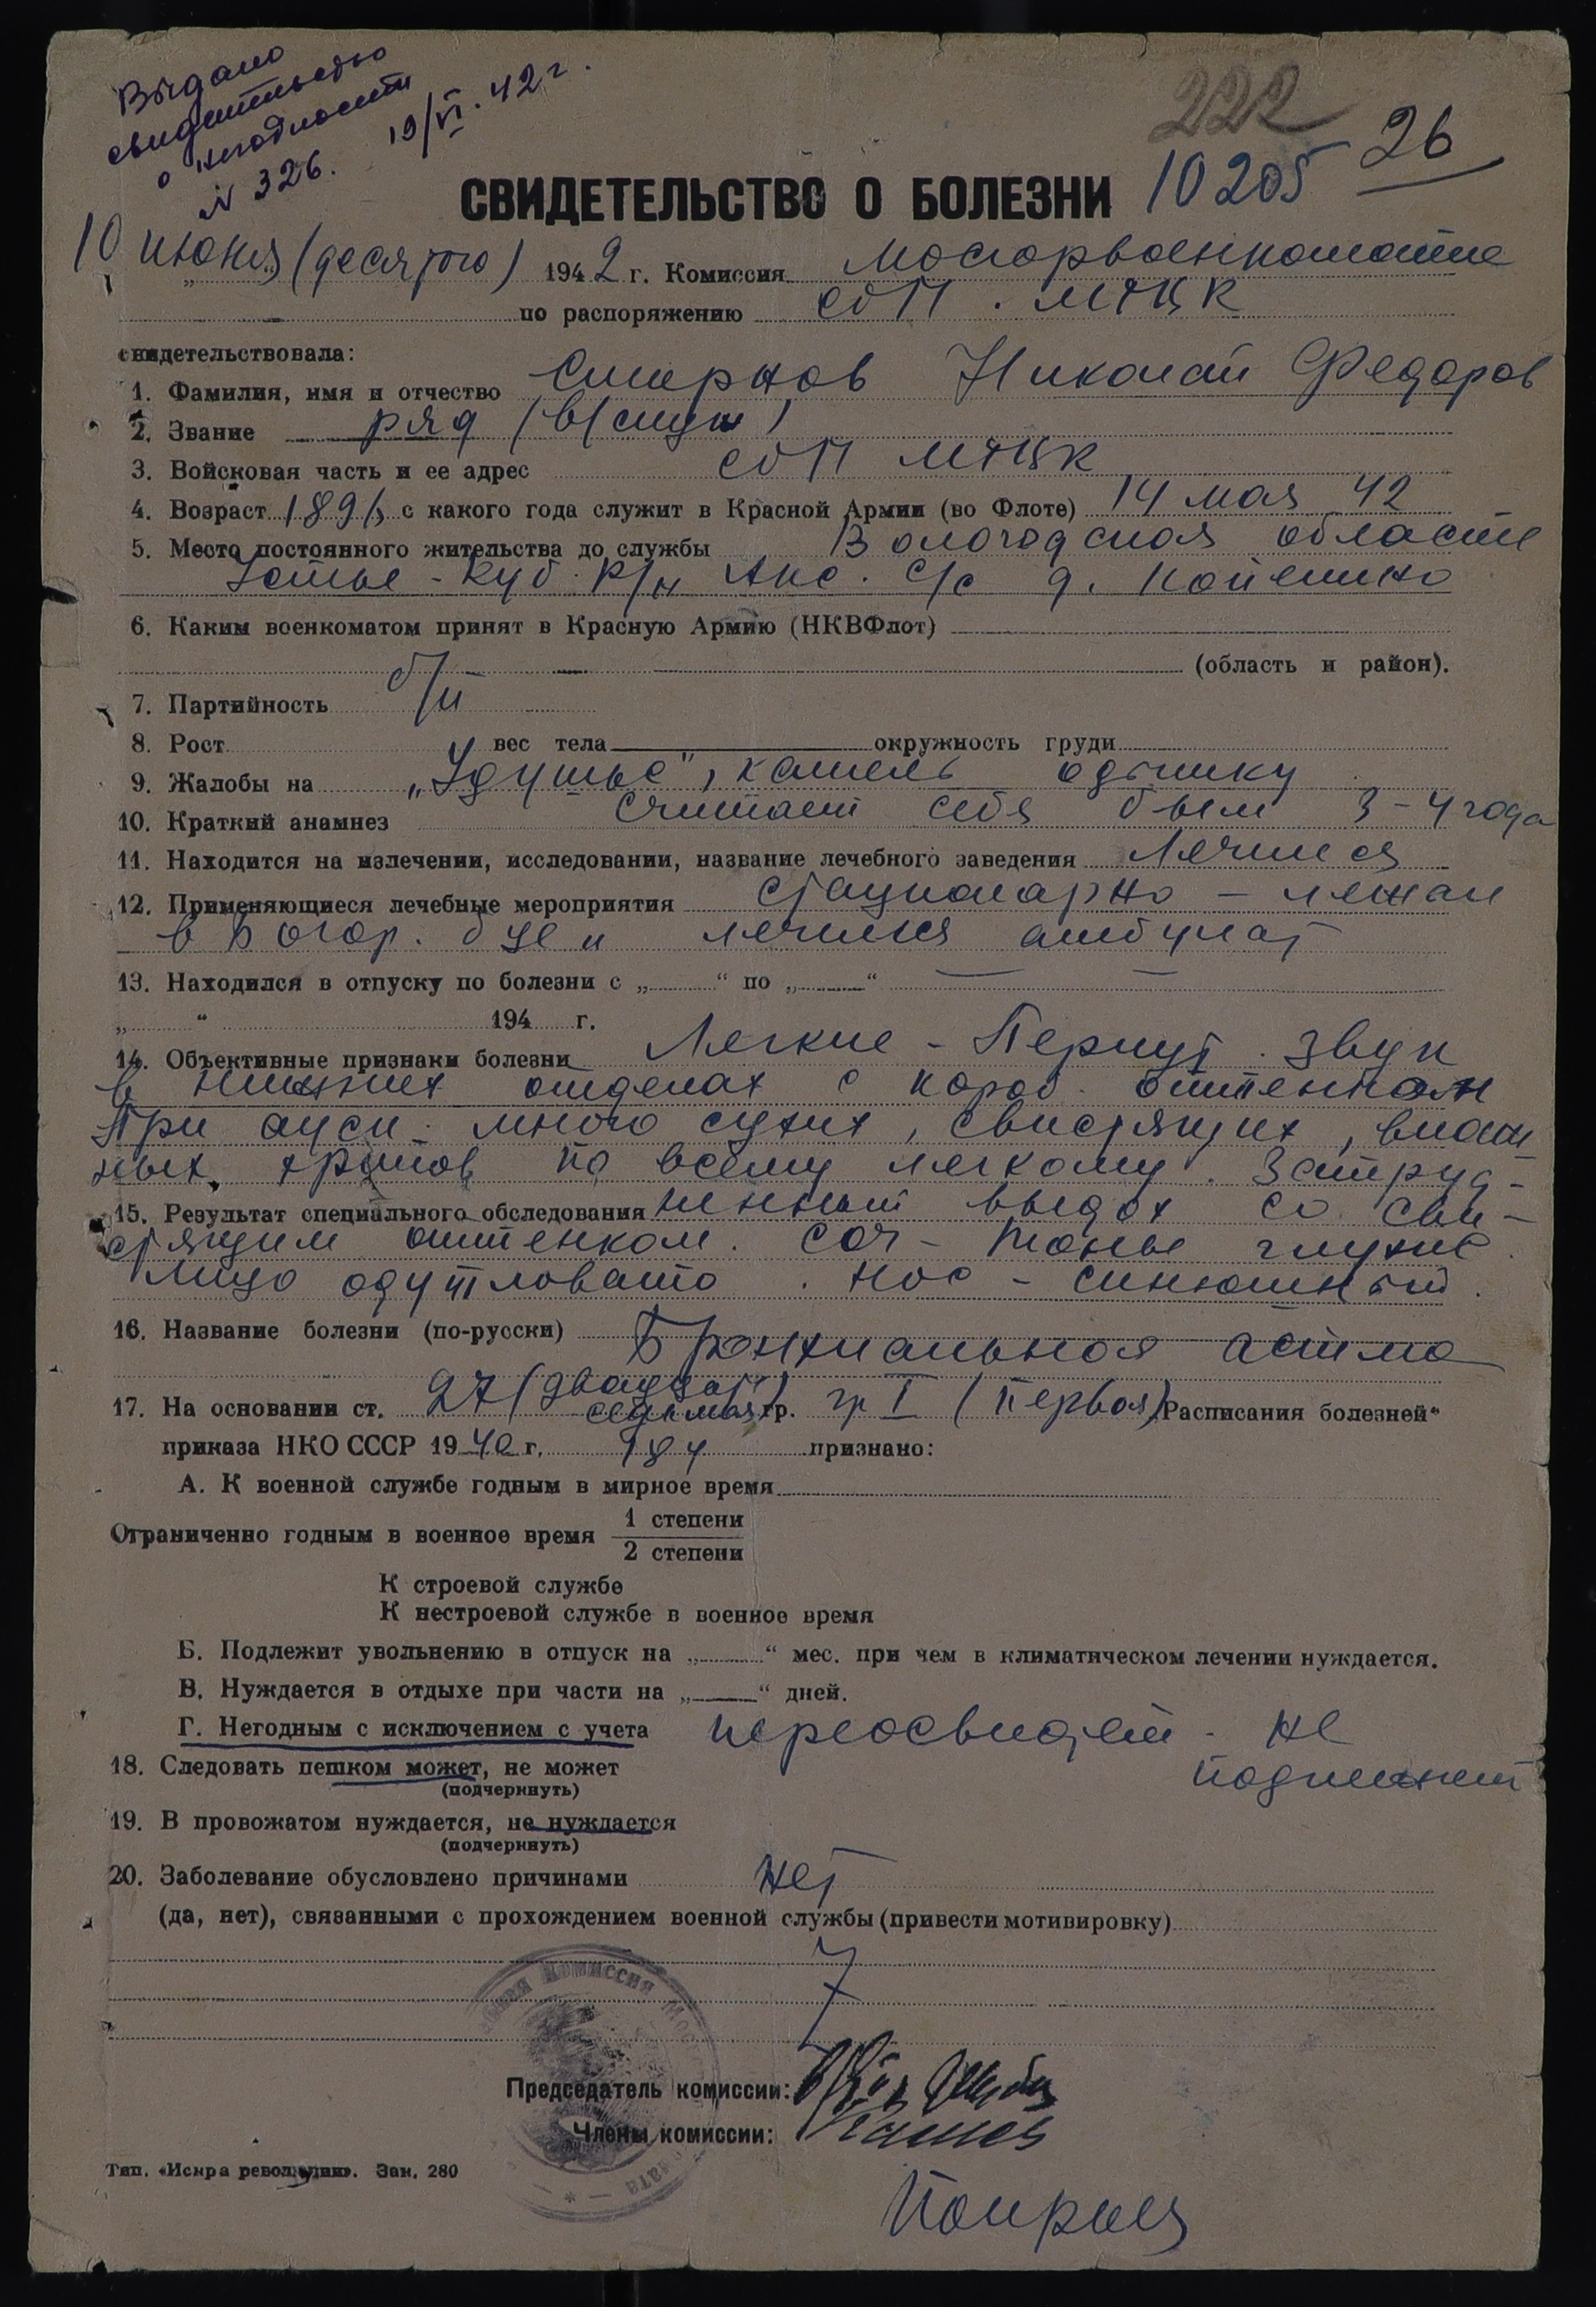 Выдано
свидетельство
о негодности
N 326. 19/VI. 42 г.
222
26
10205
СВИДЕТЕЛЬСТВО О БОЛЕЗНИ
10 июня (десятого) 1942 г. Комиссия Мосгорвоенкомате
по распоряжению
свидетельствовала:
1. Фамилия, имя и отчество Смирнов Николай Федоров
2. Звание ряд
3. Войсковая часть и ее адрес
4. Возраст 1891, с какого года служит в Красной Армии (во Флоте) 14 мая 42
5. Место постоянного жительства до службы Вологодская область
Устье-Куб. р/н с/с д.
6. Каким военкоматом принят в Красную Армию (НКВФлот)
(область и район).
7. Партийность б/п
8. Рост вес тела окружность груди
9. Жалобы на „Удушье", кашель одышку
10. Краткий анамнез Считает себя 3-4 года
11. Находится на излечении, исследовании, название лечебного заведения Лечился
12. Применяющиеся лечебные мероприятия стационарно - лежал
в и лечился амбулат
13. Находился в отпуску по болезни с „ “ по „ “
„ “ 194 г.
14. Объективные признаки болезни Легкие - Перкут. звук
в нижних отделах с короб. оттенком
При ауск. много сухих, свистящих, влаж
ных, хрипов по всему легкому. Затруд-
15. Результат специального обследования ненный выдох со сви-
стящим оттенком. Сог - тоны глухие.
Лицо одутловато. Нос - синюшный.
16. Название болезни (по-русски) Бронхиальная астма
17. На основании ст. 27 (двадцать седьмая) гр. гр I (первая) Расписания болезней“
приказа НКО СССР 1940 г. 184 признано:
А. К военной службе годным в мирное время
Ограниченно годным в военное время 1 степени
2 степени
К строевой службе
К нестроевой службе в военное время
Б. Подлежит увольнению в отпуск на „ “ мес. при чем в климатическом лечении нуждается.
В. Нуждается в отдыхе при части на „ “ дней.
Г. Негодным с исключением с учета переосвидет. не
подлежит
18. Следовать пешком может, не может
(подчеркнуть)
19. В провожатом нуждается, не нуждается
(подчеркнуть)
20. Заболевание обусловлено причинами нет
(да, нет), связанными с прохождением военной службы (привести мотивировку)
Председатель комиссии:
Члены комиссии:
Тип. «Искра революции». Зак. 280